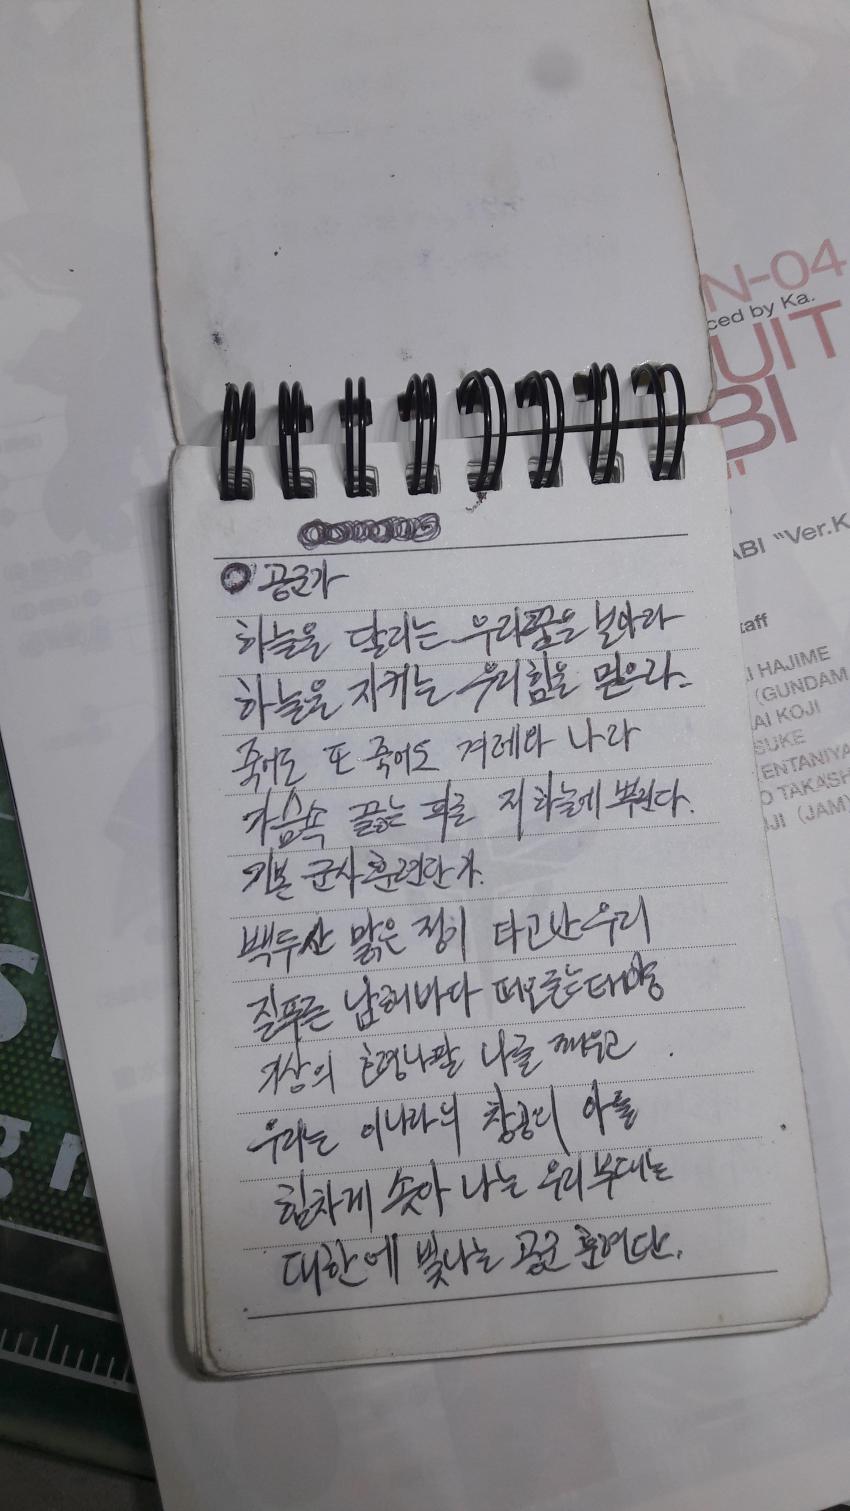 공군가
하늘을 달리는 우리꿈을 보아라
하늘을 지키는 우리힘을 믿으라.
죽어도 또 죽어도 겨레와 나라
가슴속 끓는 피를 저 하늘에 뿌린다.
기본 군사훈련단가.
백두산 맑은 정기 타고난 우리
질푸른 남해바다 떠오르는 태양
기상의 나팔 나를 깨우고
우리는 이나라의 창공의 아들
힘차게 솟아 나는 우리 부대는
대한에 빛나는 공군 훈련단.
N-04
ced by Ka.
UIT
BI
ABI "Ver.K
taff
I HAJIME
(GUNDAM
AI KOJI
SUKE
ENTANIYA
O TAKASH
JI (JAM)